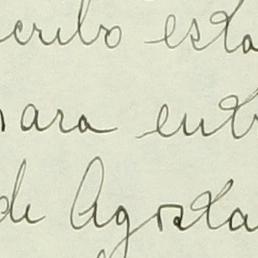 cribo esta
para entr
de Agosta